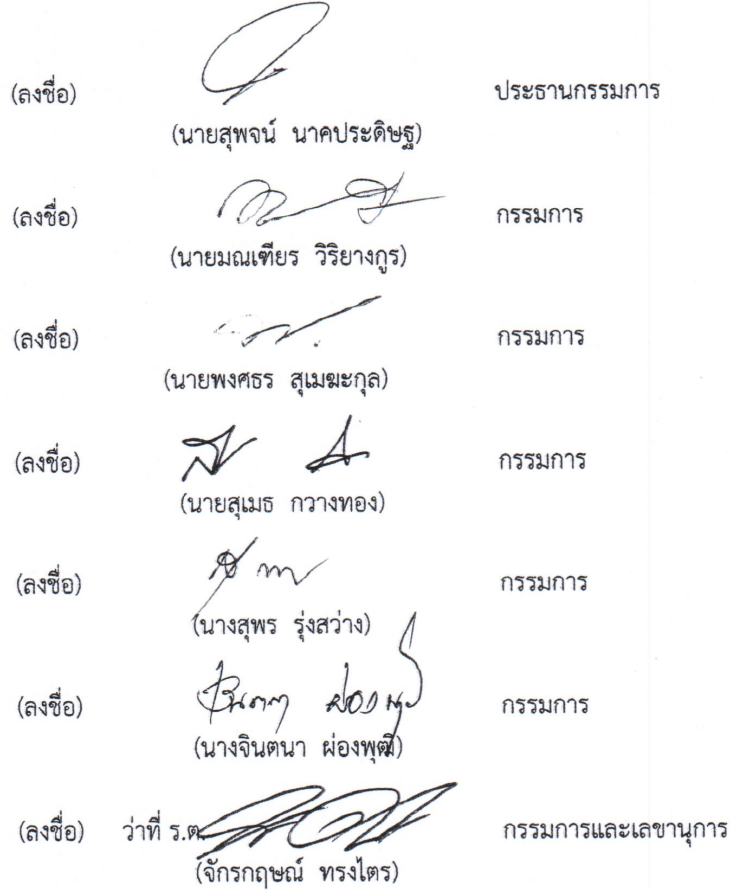 (ลงชื่อ) ประธานกรรมการ
(นายสุพจน์ นาคประดิษฐ)
(ลงชื่อ) กรรมการ
(นายมณเฑียร วิริยางกูร)
(ลงชื่อ) กรรมการ
(นายพงศธร สุเมฆะกุล)
(ลงชื่อ) กรรมการ
(นายสุเมธ กวางทอง)
(ลงชื่อ) กรรมการ
(นางสุพร รุ่งสว่าง)
(ลงชื่อ) จินตนา ผ่องพุฒิ กรรมการ
(นางจินตนา ผ่องพุฒิ)
(ลงชื่อ) ว่าที่ ร.ต. กรรมการและเลขานุการ
(จักรกฤษณ์ ทรงไตร)